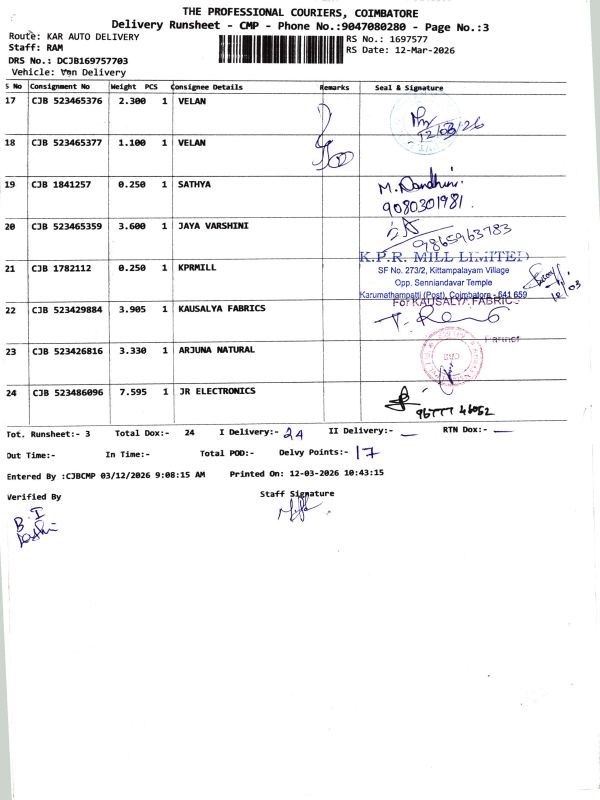 THE PROFESSIONAL COURIERS, COIMBATORE
Delivery Runsheet - CMP - Phone No.:9047080280 - Page No.:3
Route: KAR AUTO DELIVERY
RS No.: 1697577
Staff: RAM
RS Date: 12-Mar-2026
DRS No.: DCJB169757703
Vehicle: Van Delivery
S No Consignment No Weight PCS Consignee Details Remarks Seal & Signature
17 CJB 523465376 2.300 1 VELAN
12/03/26
18 CJB 523465377 1.100 1 VELAN
19 CJB 1841257 0.250 1 SATHYA M. Nandhini.
9080301981.
20 CJB 523465359 3.600 1 JAYA VARSHINI
9865963783
K.P.R. MILL LIMITED
21 CJB 1782112 0.250 1 KPRMILL SF No. 273/2, Kittampalayam Village
Opp. Senniandavar Temple
Karumathampatti (Post), Coimbatore - 641 659
For KAUSALYA FABRICS
22 CJB 523429884 3.905 1 KAUSALYA FABRICS
Partner
23 CJB 523426816 3.330 1 ARJUNA NATURAL
24 CJB 523486096 7.595 1 JR ELECTRONICS
96777 46052
Tot. Runsheet:- 3 Total Dox:- 24 I Delivery:- 24 II Delivery:- — RTN Dox:- —
Out Time:- In Time:- Total POD:- Delvy Points:- 17
Entered By :CJBCMP 03/12/2026 9:08:15 AM Printed On: 12-03-2026 10:43:15
Verified By Staff Signature